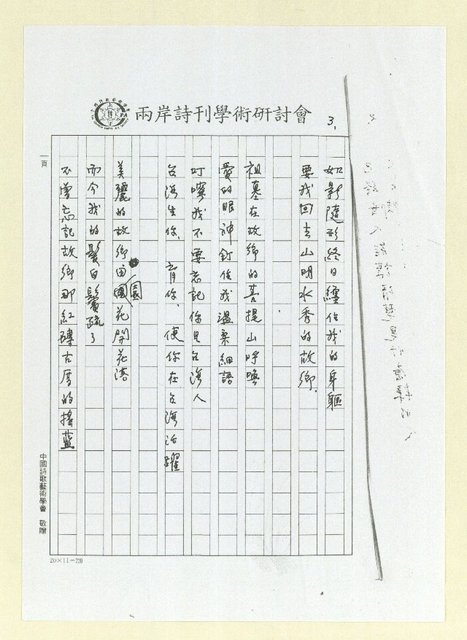 兩岸詩刊學術研討會
3.
如影隨形終日纏住我的身軀
要我回去山明水香的故鄉.
祖墓在故鄉的菩提山呼喚
愛的眼神釘住我溫柔細語
叮嚀我不要忘記你是台灣人
台灣生你、育你、使你在台灣活躍
美麗的故鄉田園農花開花落
而今我的髮白鬢疏了
不曾忘記故鄉那紅磚古厝的搖籃
頁
中國詩歌藝術學會 敬贈
20×11=220